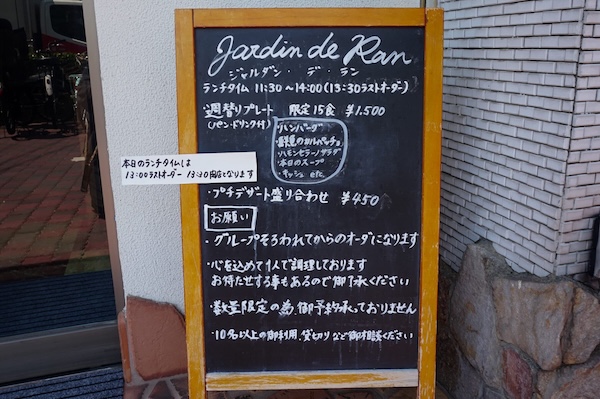 Jardin de Ran
ジャルダン・デ・ラン
ランチタイム 11:30～14:00(13:30ラストオーダー)
週替りプレート 限定15食 ¥1.500
(パン・ドリンク付)
・ハンバーグ
・鮮魚のカルパッチョ
・ハモンセラーノサラダ
・本日のスープ
・キッシュ etc.
本日のランチタイムは
13:00ラストオーダー 13:30閉店となります
・プチデザート盛り合わせ ¥450
お願い
・グループそろわれてからのオーダになります
・心を込めて1人で調理しております
お待たせする事もあるので御了承ください
・数量限定の為、御予約承っておりません
・10名以上の御利用、貸切りなど御相談ください